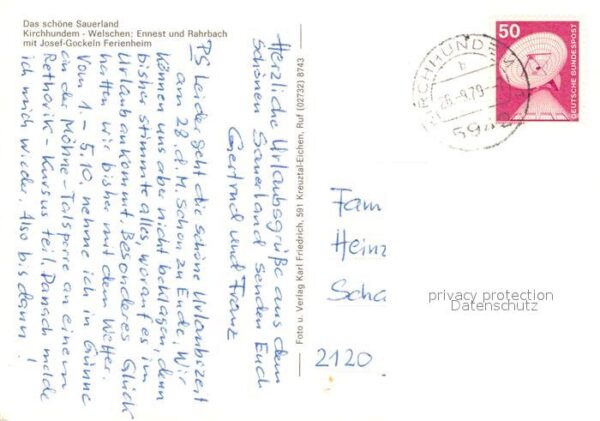 Das schöne Sauerland
Kirchhundem - Welschen; Ennest und Rahrbach
mit Josef-Gockeln Ferienheim
Herzliche Urlaubsgrüße aus dem
Schönen Sauerland senden Euch
Gertrud und Franz
PS Leider geht die schöne Urlaubszeit
am 28. d. M. schon zu Ende. Wir
können uns aber nicht beklagen, denn
bisher stimmte alles, worauf es im
Urlaub ankommt. Besonderes Glück
hatten wir bisher mit dem Wetter.
Vom 1. - 5.10. nehme ich in Günne
an der Möhne-Talsperre an einem
Rethorik-Kursus teil. Danach melde
ich mich wieder. Also bis dann!
Foto u. Verlag Karl Friedrich, 591 Kreuztal-Eichen, Ruf (02732) 8743
50
DEUTSCHE BUNDESPOST
KIRCHHUNDEM
b
26.-9.79
594
Fam
Heinz
Scha
2120.
privacy protection
Datenschutz